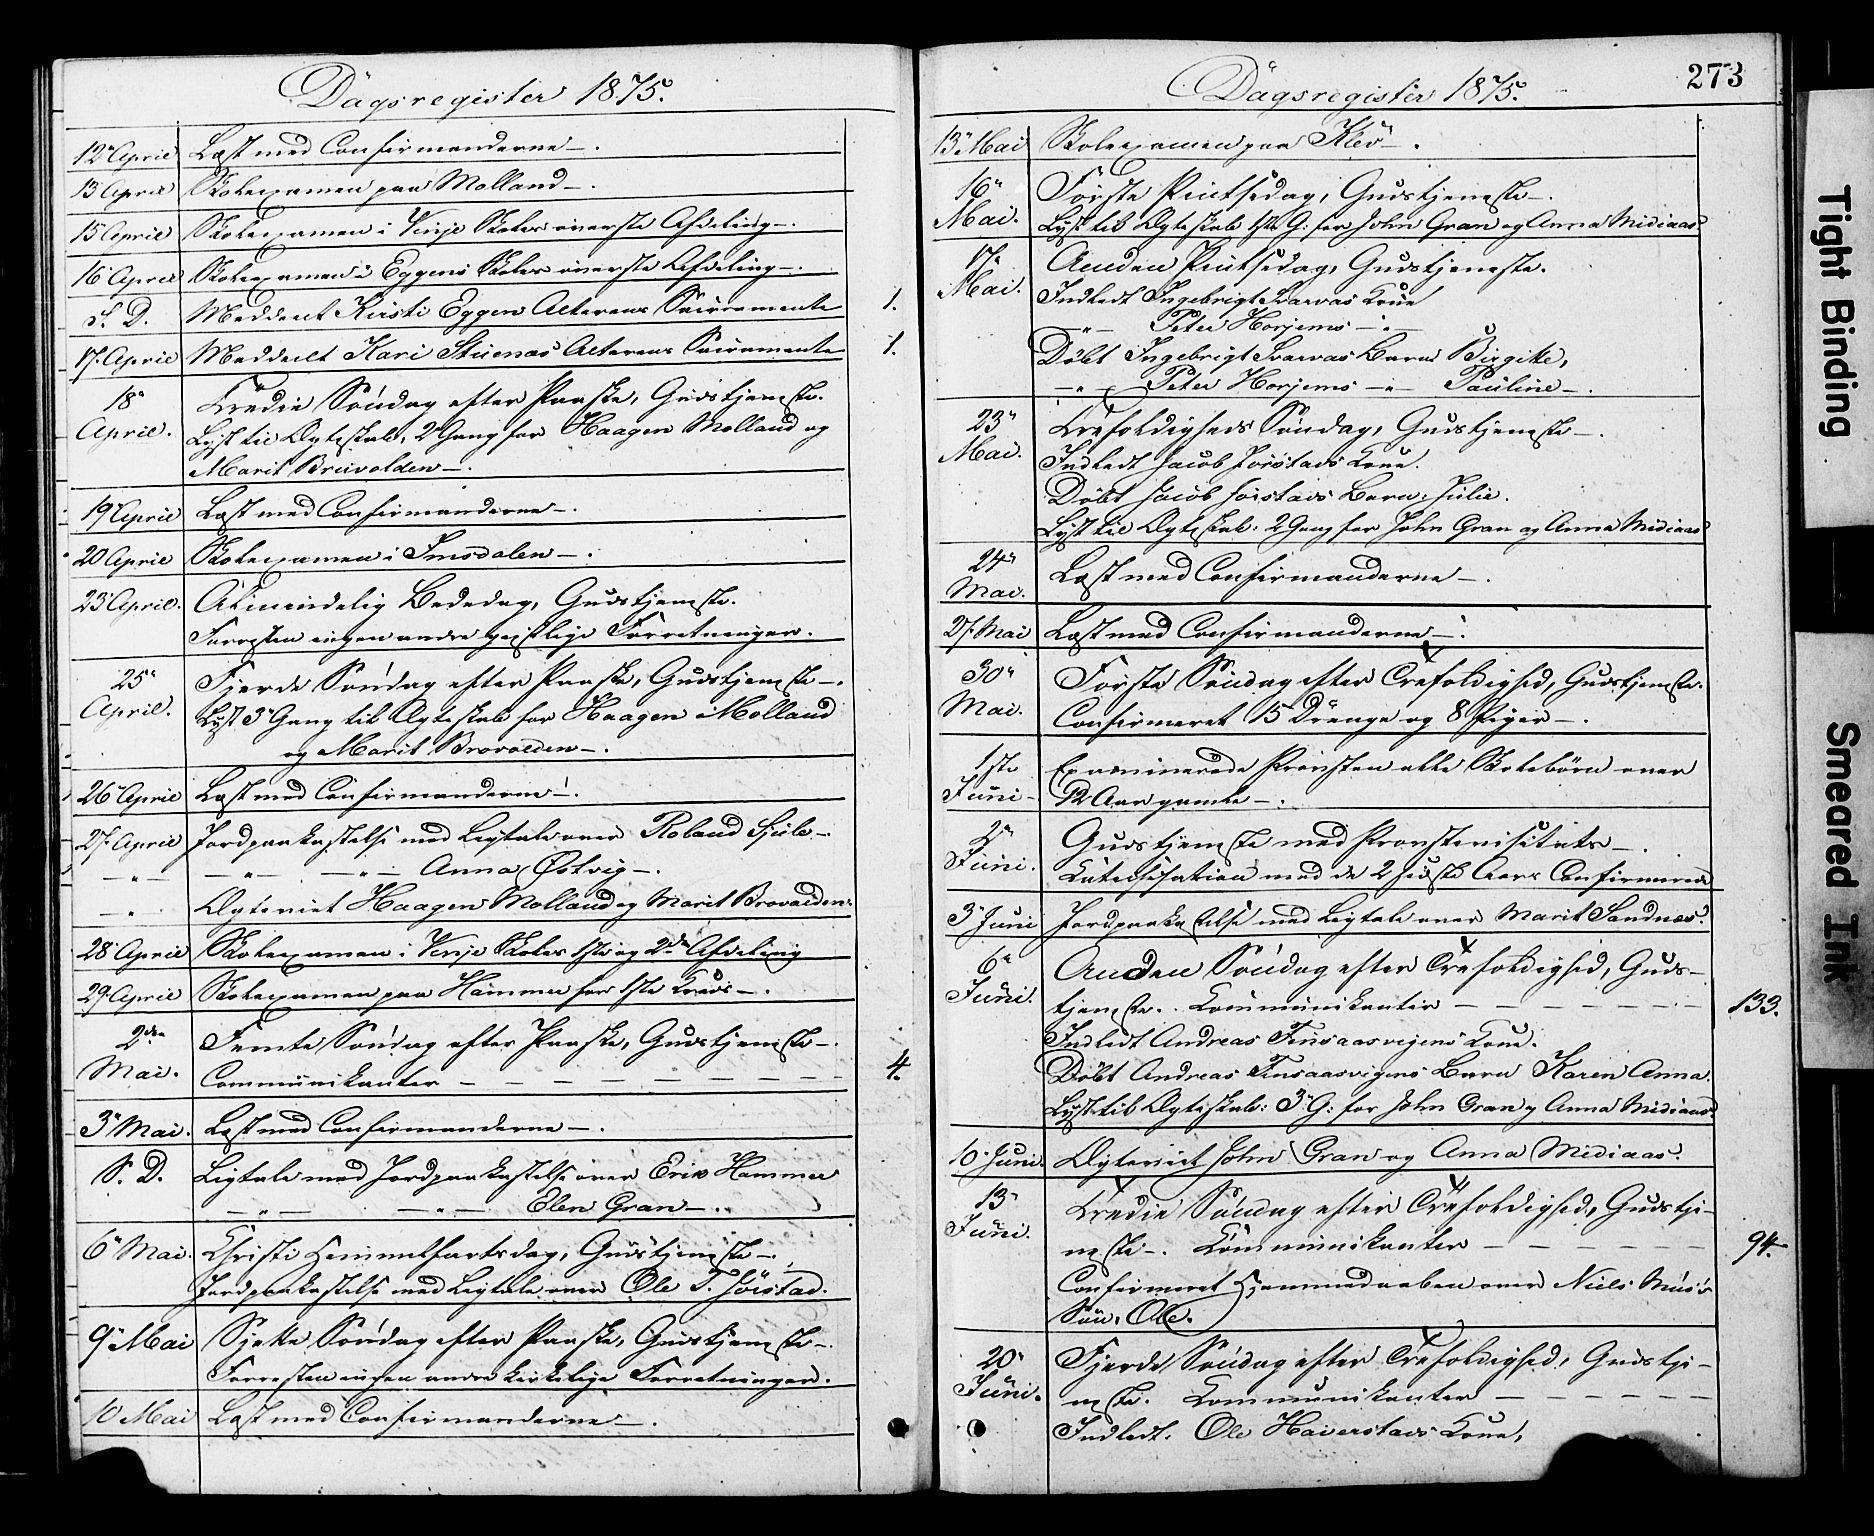 Dagsregister 1875.
12 April Læst med Confirmanderne.
13 April Skoleexamen paa Molland.
15 April Skoleexamen i Vinje Skoles øverste Afdeling.
16 April Skoleexamen i Eggens Skoles øverste Afdeling.
S. D. Meddeelt Kirsti Eggen Alterens Sacramente 1.
17 April Meddeelt Kari Stuenæs Alterens Sacramente 1.
18 April. Tredie Søndag efter Paaske, Gudstjeneste.
Lyst til Ægteskab, 2 Gang for Haagen Molland og
Marit Brovolden.
19 April Læst med Confirmanderne.
20 April Skoleexamen i Imsdalen.
23 April. Almindelig Bededag, Gudstjeneste.
Forresten ingen andre geistlige Forretninger.
25 April. Fjerde Søndag efter Paaske, Gudstjeneste.
Lyst 3 Gang til Ægteskab for Haagen Molland
og Marit Brovolden.
26 April Læst med Confirmanderne.
27 April Jordpaakastelse med Ligtale over Roland
-"- -"- -"- Anna Østvig.
-"- Ægteviet Haagen Molland og Marit Brovolden.
28 April Skoleexamen i Vinje Skoles 1ste og 2den Afdeling
29 April Skoleexamen paa Hammer for 1ste Kreds.
2den Mai. Femte Søndag efter Paaske, Gudstjeneste.
Communikanter 4.
3 Mai. Læst med Confirmanderne.
S. D. Ligtale med Jordpaakastelse over Erik Hammer
-"- -"- Elen Gran.
6 Mai. Christi Himmelfartsdag, Gudstjeneste.
Jordpaakastelse med Ligtale over Ole T. Jørstad.
9 Mai Sjette Søndag efter Paaske, Gudstjeneste.
Forresten ingen andre kirkelige Forretninger.
10 Mai Læst med Confirmanderne.
Dagsregister 1875.
273
13 Mai Skoleexamen paa Klev.
16 Mai. Første Pintsedag, Gudstjeneste.
Lyst til Ægteskab 1ste G: for John Gran og Anna Midiaas
17 Mai. Anden Pintsedag, Gudstjeneste.
Indledt Ingebrigt Svarvas Kone
-"- Peter Horjems -"-
Døbt Ingebrigt Svarvas Barn Birgitte,
-"- Peter Horjems -"- Pauline.
23 Mai. Trefoldigheds Søndag, Gudstjeneste.
Indledt Jacob Jørstads Kone.
Døbt Jacob Jørstads Barn, Julie.
Lyst til Ægteskab: 2 Gang for John Gran og Anna Midiaas
24 Mai. Læst med Confirmanderne.
27 Mai Læst med Confirmanderne.
30 Mai. Første Søndag efter Trefoldighed, Gudstjeneste.
Confirmeret 15 Drenge og 8 Piger.
1ste Juni Examinerede Provsten alle Skolebørn over
12 Aar gamle.
2 Juni. Gudstjeneste med Provstevisitats.
Katechisation med de 2 sidste Aars Confirmerede
3 Juni Jordpaakastelse med Ligtale over Marit Sandnæs.
6 Juni. Anden Søndag efter Trefoldighed, Guds-
tjeneste. Kommunikanter 133.
Indledt Andreas Finsaasvigens Kone.
Døbt Andreas Finsaasvigens Barn Karen Anna.
Lyst til Ægteskab: 3 G: for John Gran og Anna Midiaas.
10 Juni. Ægteviet John Gran og Anna Midiaas.
13 Juni. Tredie Søndag efter Trefoldighed, Gudstje-
neste. Kommunikanter 94.
Confirmeret Hjemmedaaben over Niels
Søn, Ole.
20 Juni. Fjerde Søndag efter Trefoldighed, Gudstje-
neste. Kommunikanter
Indledt. Ole Kone,
Tight Binding
Smeared Ink